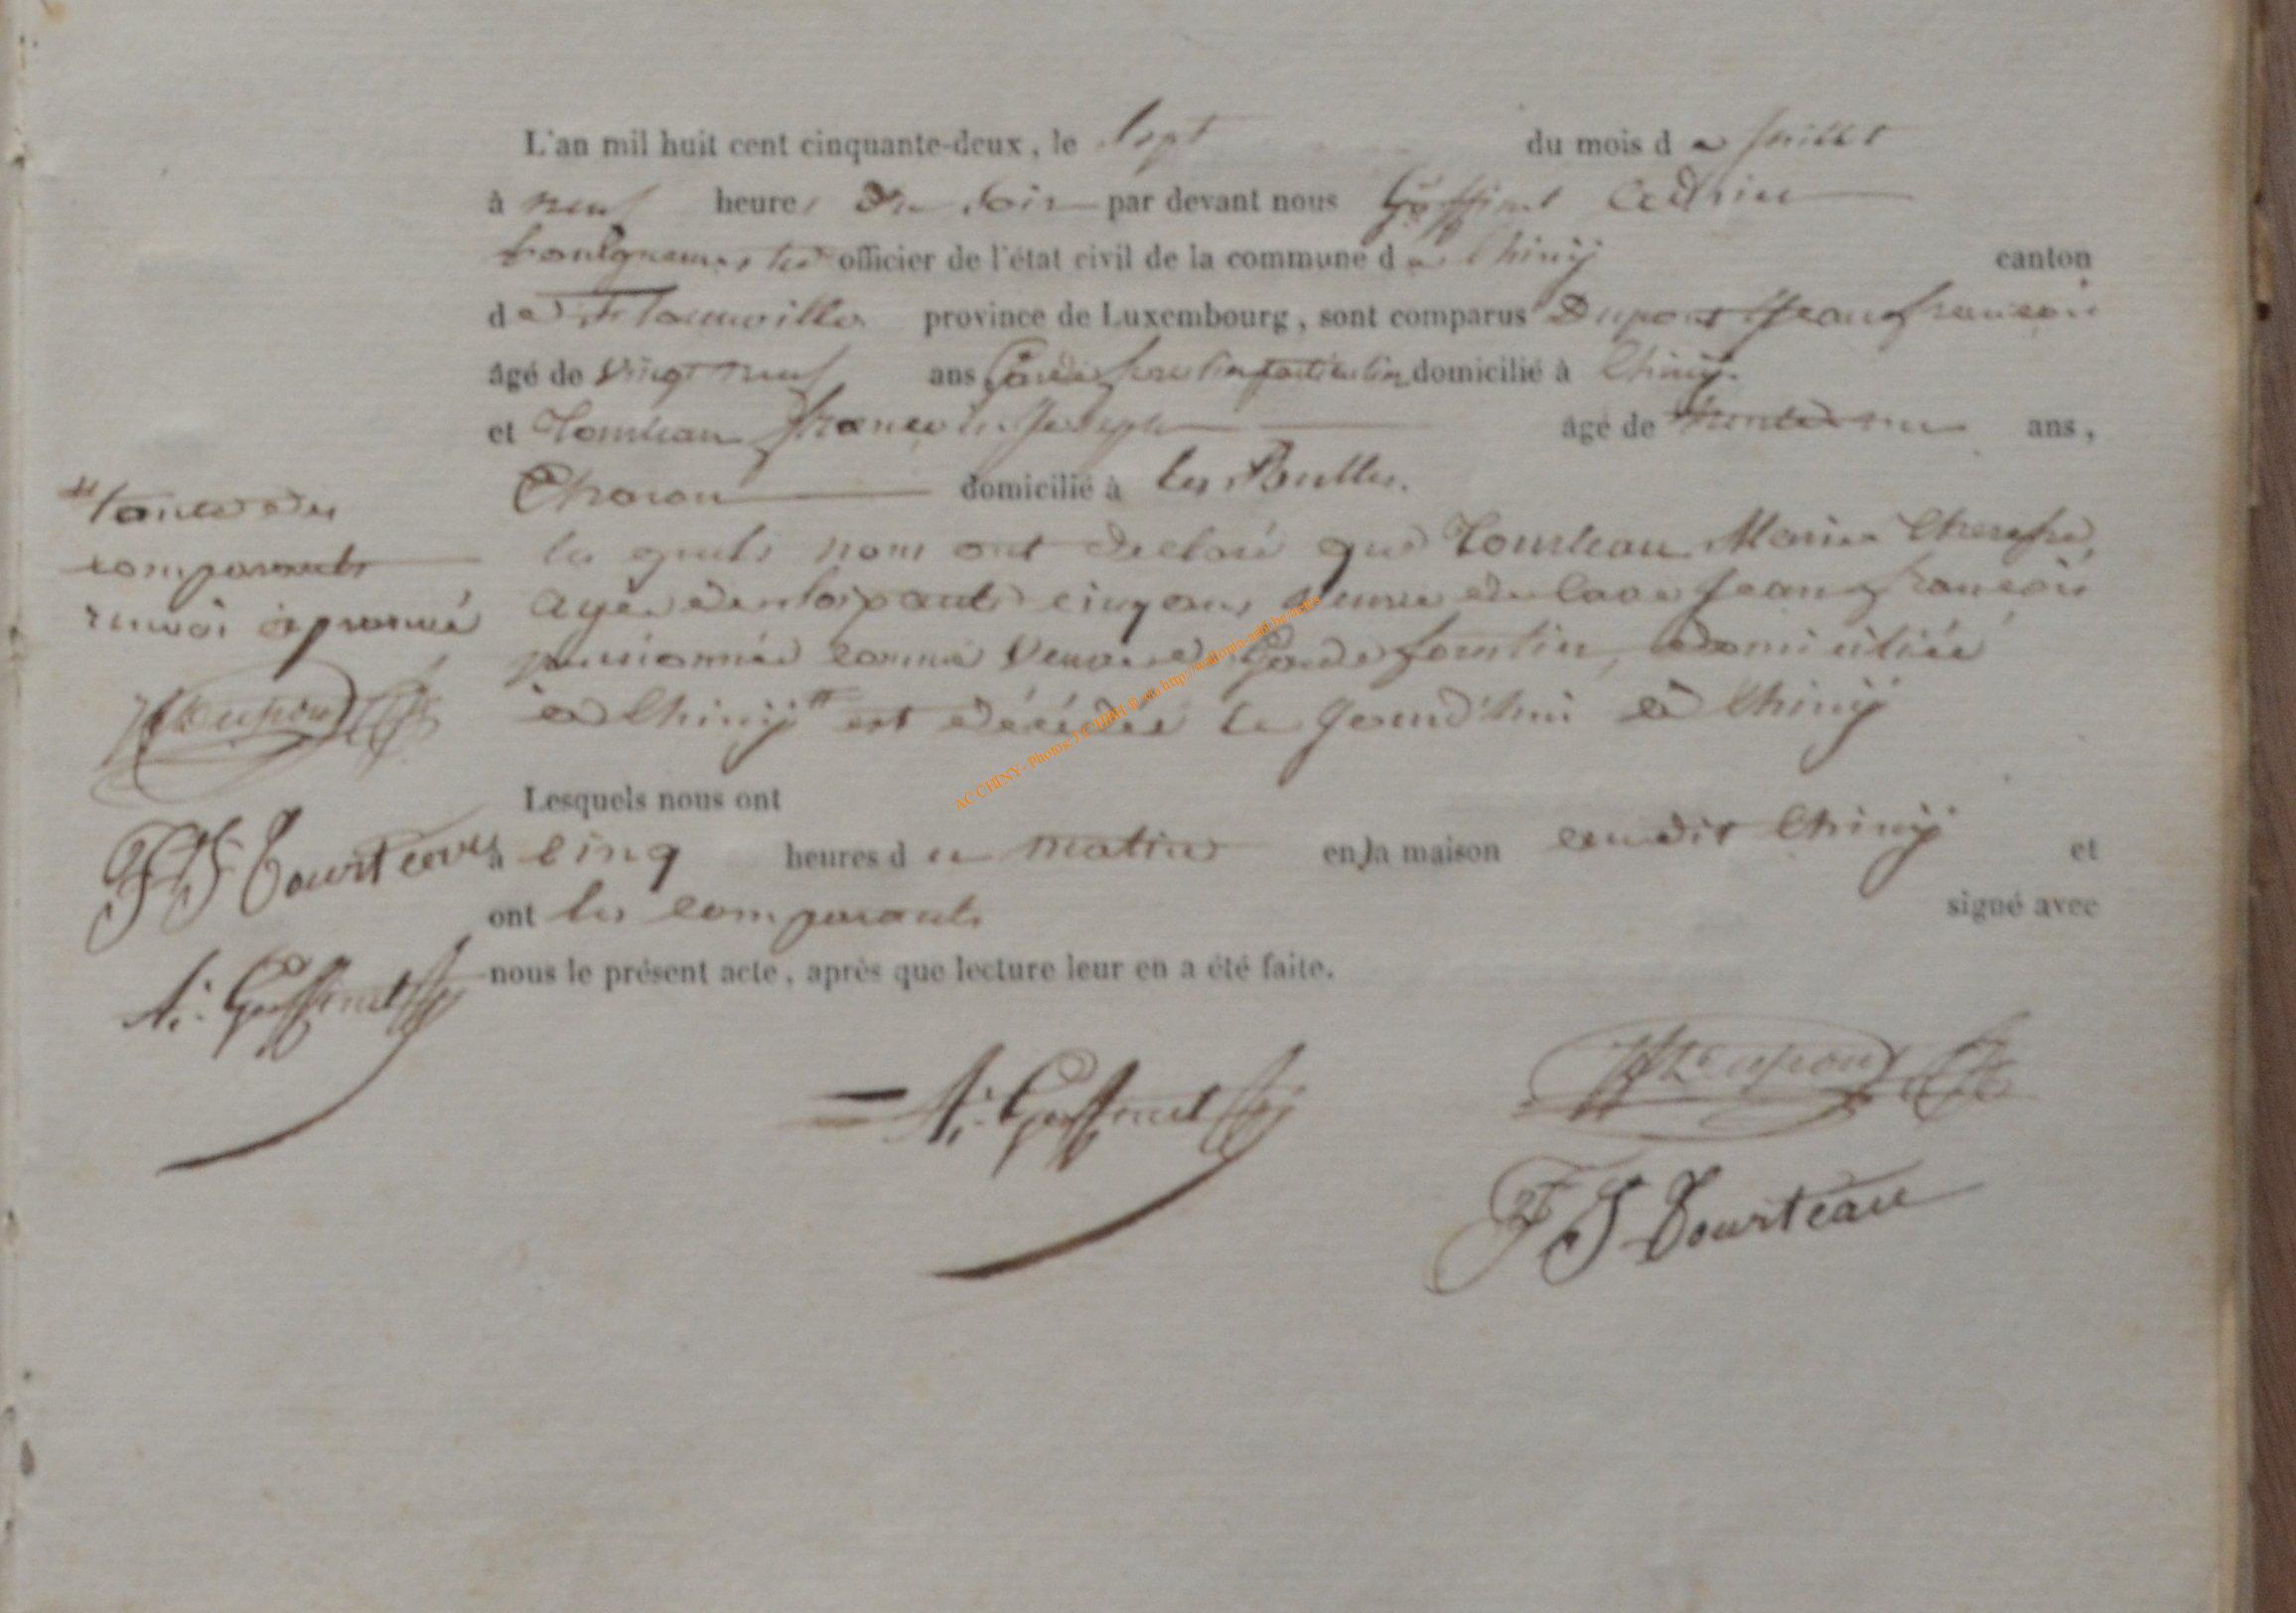 L'an mil huit cent cinquante-deux, le sept du mois de juillet
à neuf heures du soir par devant nous Goffinet Adrien
bourguemestre officier de l'état civil de la commune de Chiny canton
de Florenville province de Luxembourg, sont comparus Dupont Jean françois
âgé de vingt neuf ans Garde forestier particulier domicilié à Chiny.
et Tourteau françois Joseph âgé de trente ans,
Charon domicilié à les Bulles.
les quels nous ont declaré que Tourteau Marie
agée de soixante cinq ans, veuve de Jean françois
pensionnée comme veuve de Garde forestier, domiciliée
à Chiny " est décédée le jourd'hui à Chiny
Lesquels nous ont
à cinq heures du matin en la maison audit Chiny et
ont les comparants signé avec
nous le présent acte, après que lecture leur en a été faite.
"
comparants
renvoi approuvé
JF Dupont
FJ Tourteau
A: Goffinet
A: Goffinet
JF Dupont
FJ Tourteau
AC CHINY - Photos